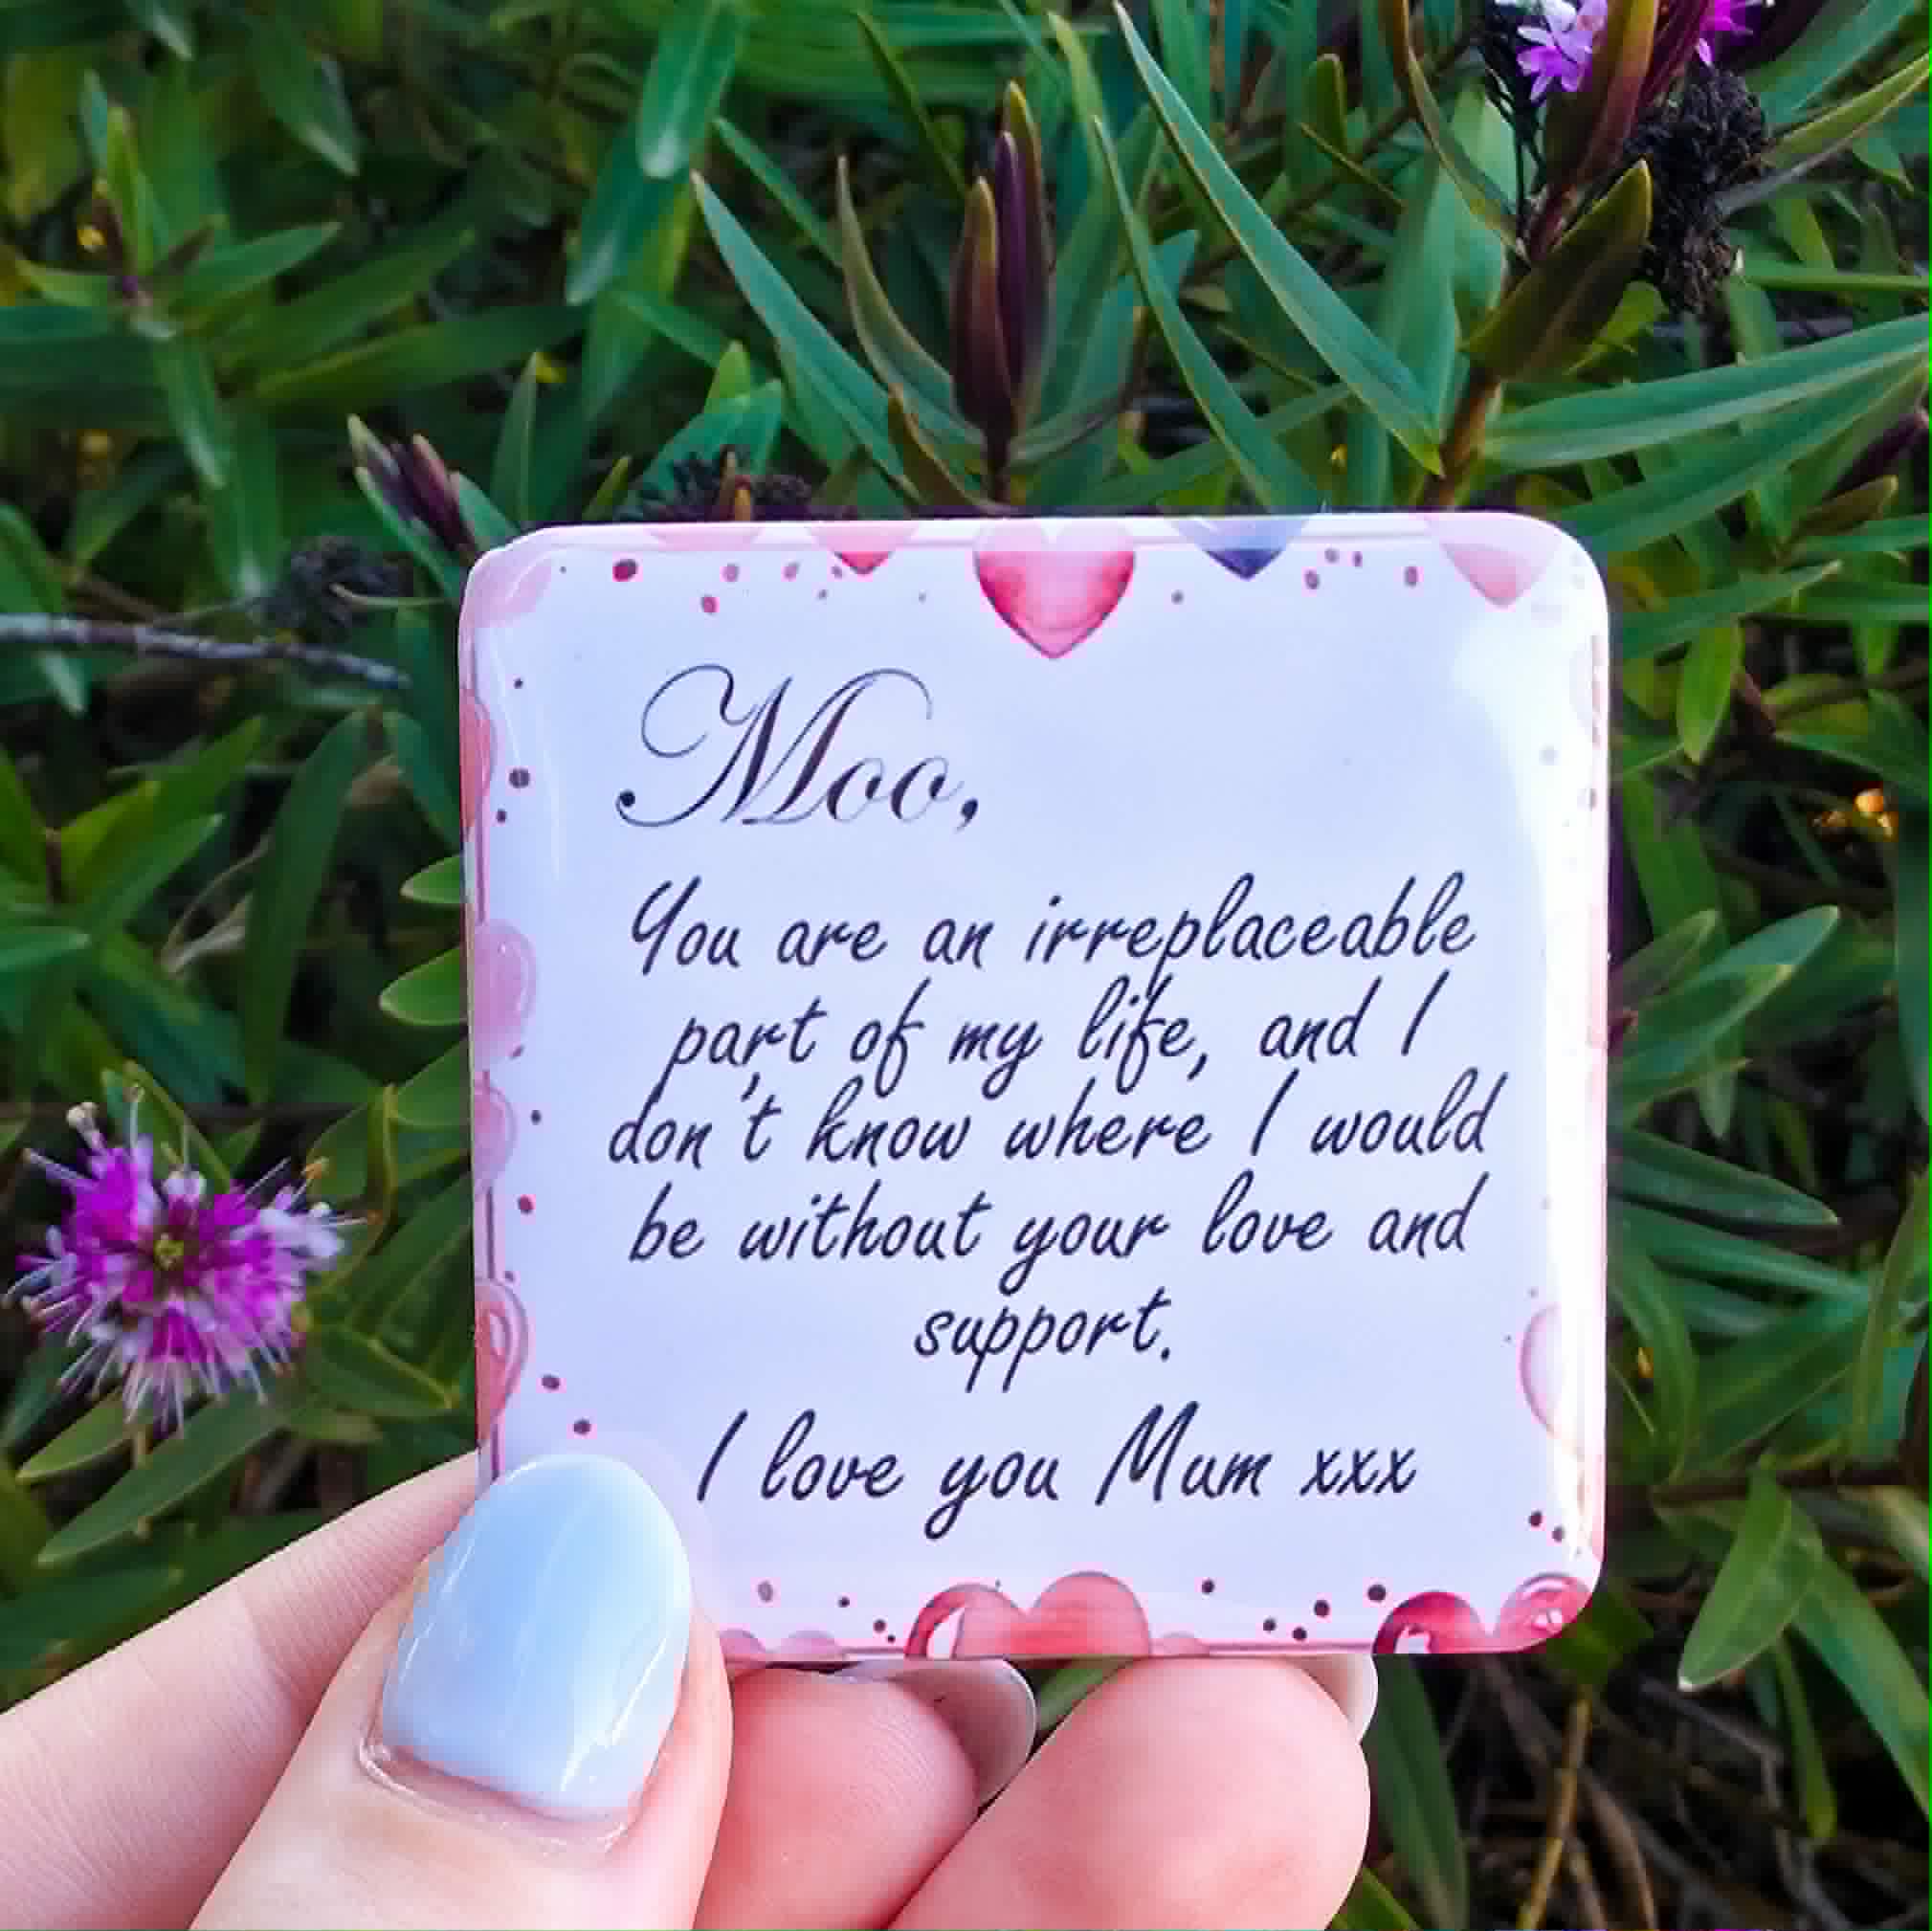 Moo,
You are an irreplaceable
part of my life, and I
don't know where I would
be without your love and
support.
I love you Mum xxx